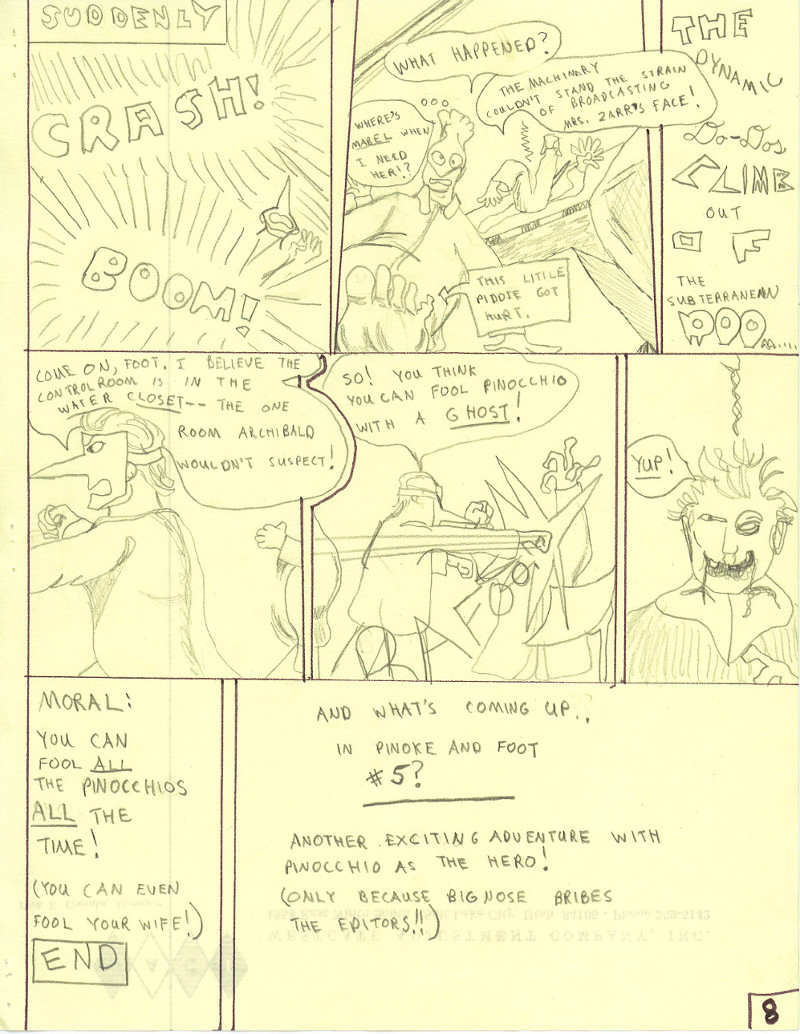 SUDDENLY
CRASH!
BOOM!
WHAT HAPPENED?
THE MACHINARY
COULDN'T STAND THE STRAIN
OF BROADCASTING
MRS. ZARR'S FACE!
WHERE'S
MABEL WHEN
I NEED
HER!?
THIS LITTLE
PIDDIE GOT
HURT.
THE
DYNAMIC
Do-Dos
CLIMB
OUT
OF
THE
SUBTERRANEAN
ROO
M....
COME ON, FOOT. I BELIEVE THE
CONTROL ROOM IS IN THE
WATER CLOSET-- THE ONE
ROOM ARCHIBALD
WOULDN'T SUSPECT!
SO! YOU THINK
YOU CAN FOOL PINOCCHIO
WITH A GHOST!
YUP!
MORAL:
YOU CAN
FOOL ALL
THE PINOCCHIOS
ALL THE
TIME!
(YOU CAN EVEN
FOOL YOUR WIFE!)
END
AND WHAT'S COMING UP..
IN PINOKE AND FOOT
#5?
ANOTHER EXCITING ADVENTURE WITH
PINOCCHIO AS THE HERO!
(ONLY BECAUSE BIGNOSE BRIBES
THE EDITORS!!)
WESTGATE ADJUSTMENT COMPANY, INC.
8